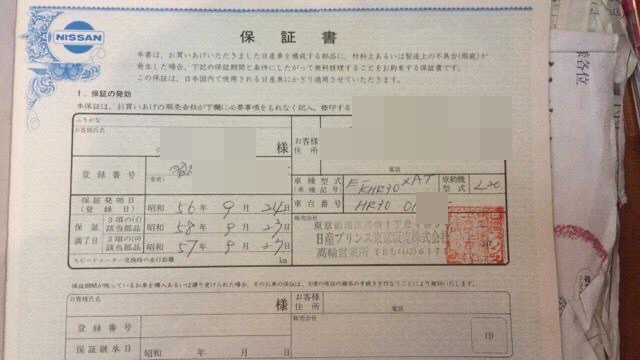 NISSAN
保証書
本書は、お買いあげいただきました日産車を構成する部品に、材料上あるいは製造上の不具合(瑕疵)が
発生した場合、下記の保証期間と条件にしたがって無料修理することをお約束する保証書です。
この保証は、日本国内で使用される日産車にかぎり適用させていただきます。
1. 保証の発効
本保証は、お買いあげの販売会社が下欄に必要事項をもれなく記入、捺印する
ふりがな
お客様氏名
様
お客様
住所
電話
登録番号
車種型式
(車種記号)
E-KHR30 XAT
原動機
型式
L20
保証発効日
(登録日)
昭和 56年 9月 24日
車台番号
HR30 01
保証
満了日
3項の(イ)
該当部品
昭和 58年 9月 23日
3項の(ロ)
該当部品
昭和 57年 9月 23日
販売会社
日産プリンス東京販売株式会社
高輪営業所 TEL(442)617
スピードメーター交換時の走行距離
km
保証期間が残っているお車を購入あるいは譲り受けられた場合、その
お客様氏名
様
お客様
住所
電話
登録番号
販売会社
保証継承日
昭和 年 月 日
印
各位